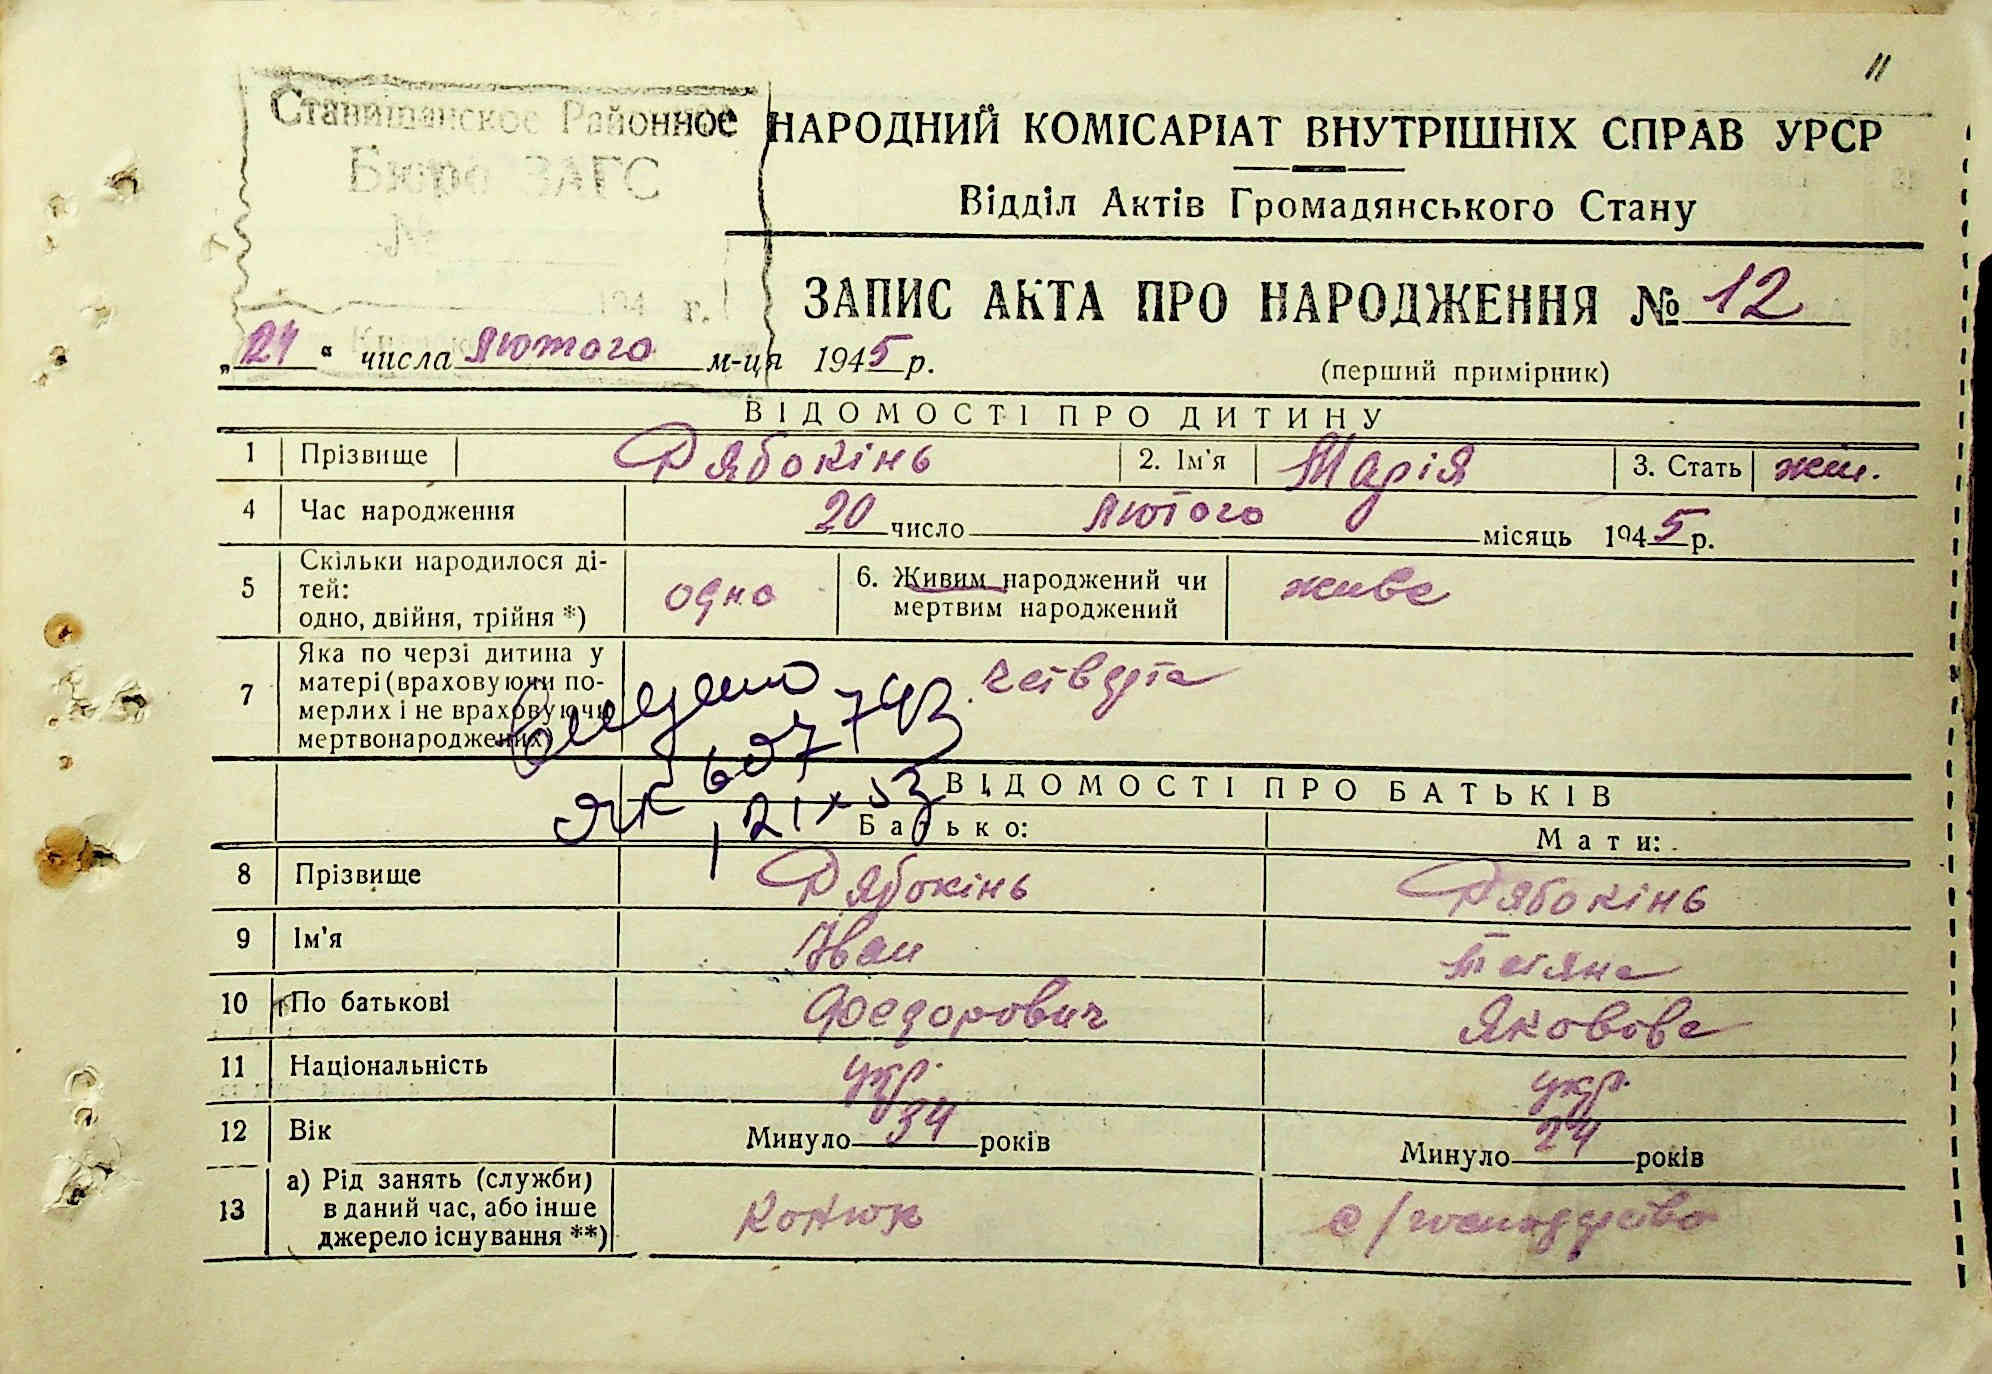 11
Ставищанское Районное
Бюро ЗАГС
№
194 г.
НАРОДНИЙ КОМІСАРІАТ ВНУТРІШНІХ СПРАВ УРСР
Відділ Актів Громадянського Стану
ЗАПИС АКТА ПРО НАРОДЖЕННЯ № 12
„24“ числа лютого м-ця 1945 р.
(перший примірник)
ВІДОМОСТІ ПРО ДИТИНУ
1 Прізвище Рябокінь 2. Ім'я Марія 3. Стать жін.
4 Час народження 20 число лютого місяць 1945 р.
5 Скільки народилося ді-
тей:
одно, двійня, трійня *) одно
6. Живим народжений чи
мертвим народжений живе
7 Яка по черзі дитина у
матері (враховуючи по-
мерлих і не враховуючи
мертвонароджених) четверта
Видано
ЯК 607743
21 X 53
ВІДОМОСТІ ПРО БАТЬКІВ
Батько: Мати:
8 Прізвище Рябокінь Рябокінь
9 Ім'я Іван Тетяна
10 По батькові Федорович Яковівна
11 Національність укр. укр.
12 Вік Минуло 34 років Минуло 24 років
13 а) Рід занять (служби)
в даний час, або інше
джерело існування **) Конюх с/господарство